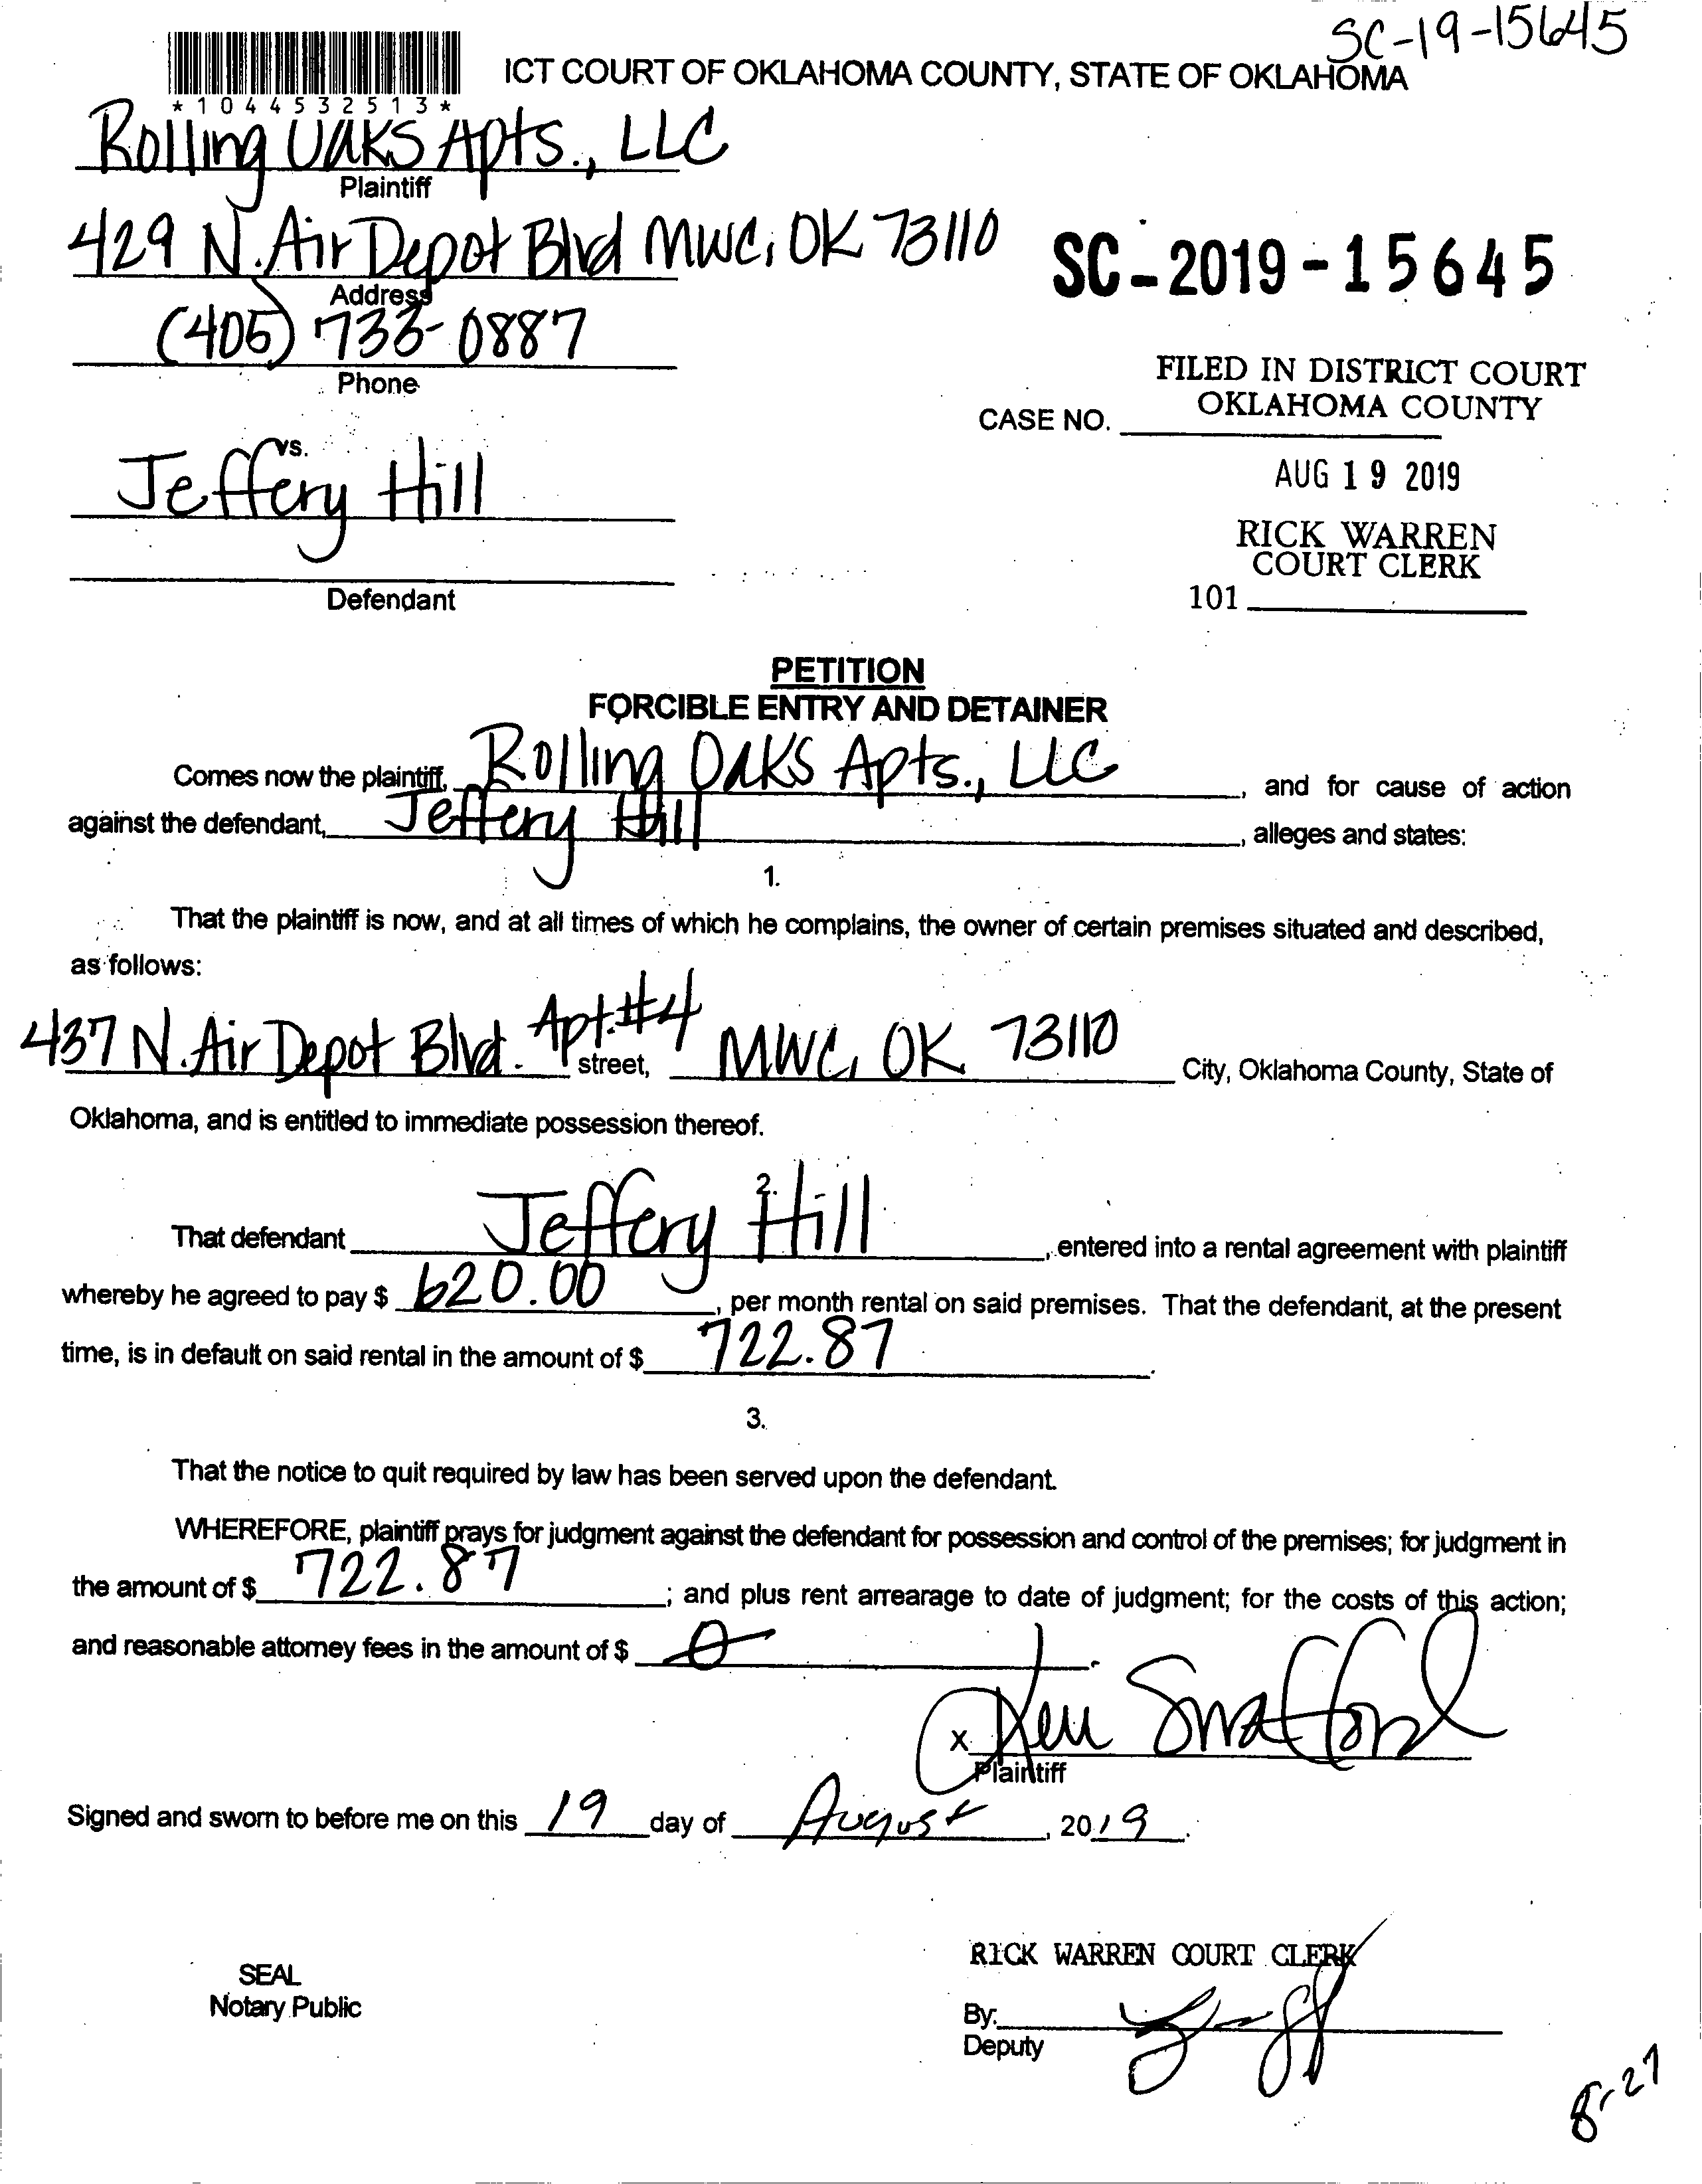 SC-19-15645
ICT COURT OF OKLAHOMA COUNTY, STATE OF OKLAHOMA
*1044532513*
Rolling Oaks Apts., LLC
Plaintiff
429 N. Air Depot Blvd MWC, OK 73110
Address
SC-2019-15645
(405) 733-0887
Phone
FILED IN DISTRICT COURT
OKLAHOMA COUNTY
CASE NO.
vs.
Jeffery Hill
AUG 19 2019
RICK WARREN
COURT CLERK
101
Defendant
PETITION
FORCIBLE ENTRY AND DETAINER
Comes now the plaintiff, Rolling Oaks Apts., LLC, and for cause of action
against the defendant, Jeffery Hill, alleges and states:
1.
That the plaintiff is now, and at all times of which he complains, the owner of certain premises situated and described,
as follows:
437 N. Air Depot Blvd. Apt. #4 street, MWC, OK 73110 City, Oklahoma County, State of
Oklahoma, and is entitled to immediate possession thereof.
2.
That defendant Jeffery Hill, entered into a rental agreement with plaintiff
whereby he agreed to pay $ 620.00, per month rental on said premises. That the defendant, at the present
time, is in default on said rental in the amount of $ 722.87.
3.
That the notice to quit required by law has been served upon the defendant.
WHEREFORE, plaintiff prays for judgment against the defendant for possession and control of the premises; for judgment in
the amount of $ 722.87; and plus rent arrearage to date of judgment; for the costs of this action;
and reasonable attorney fees in the amount of $ 0.
x
Plaintiff
Signed and sworn to before me on this 19 day of August, 2019.
RICK WARREN COURT CLERK
SEAL
Notary Public
By:
Deputy
8-27